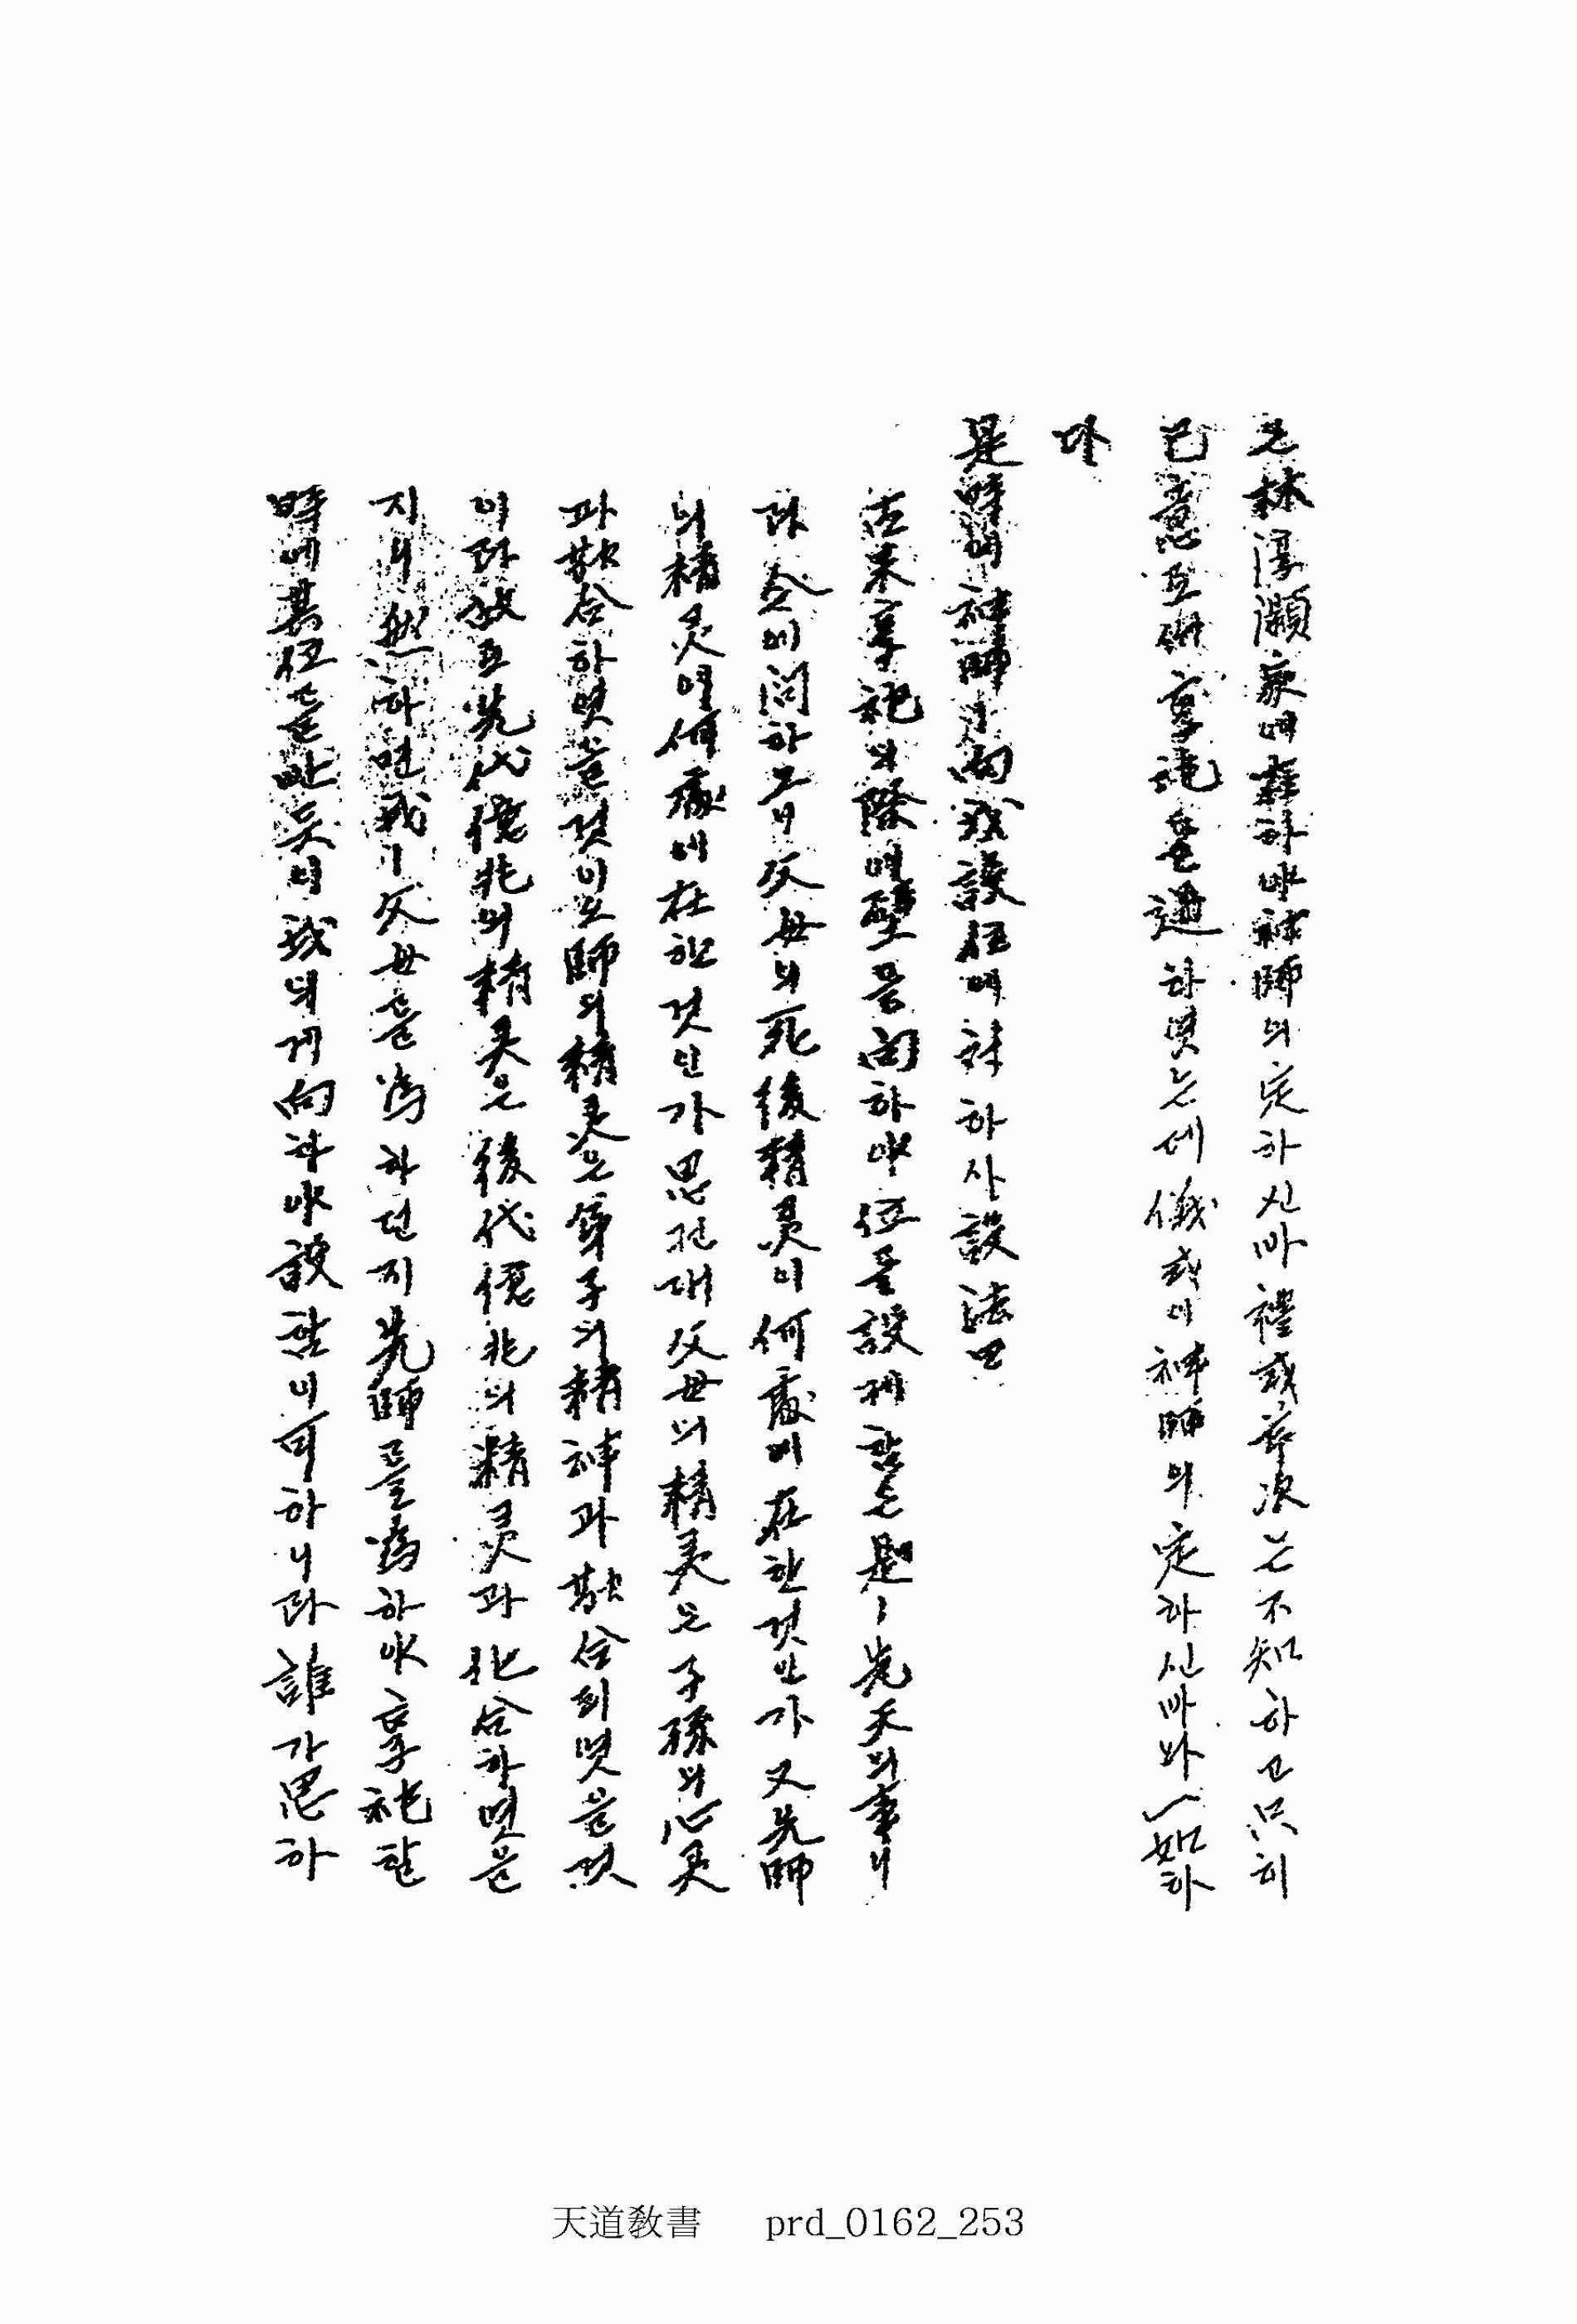 是 林淳灝家에 來하야 神師의 定하신 바 禮式節次는 不知하고 只히
己意로써 享祀를 過하엿는데 儀式이 神師의 定하신 바와 一如하
다
是時에 神師ㅣ 向我設位에 對하사 設法曰
古来享祀의 際에 壁을 向하야 位를 設케 함은 是ㅣ 先天의 事니
라 今에 問하노니 父母의 死後精灵이 何處에 在한 것인가 又先師
의 精灵이 何處에 在한 것인가 思컨대 父母의 精灵은 子孫의 心灵
과 融合하엿을 것이오 師의 精灵은 弟子의 精神과 融合되엿을 것
이라 故로 先代億兆의 精灵은 後代億兆의 精灵과 化合하엿을
지니 然하면 我ㅣ 父母를 為하던지 先師를 為하야 享祀할
時에 其位를 반듯이 我의게 向하야 設함이 可하니라 誰가 思하